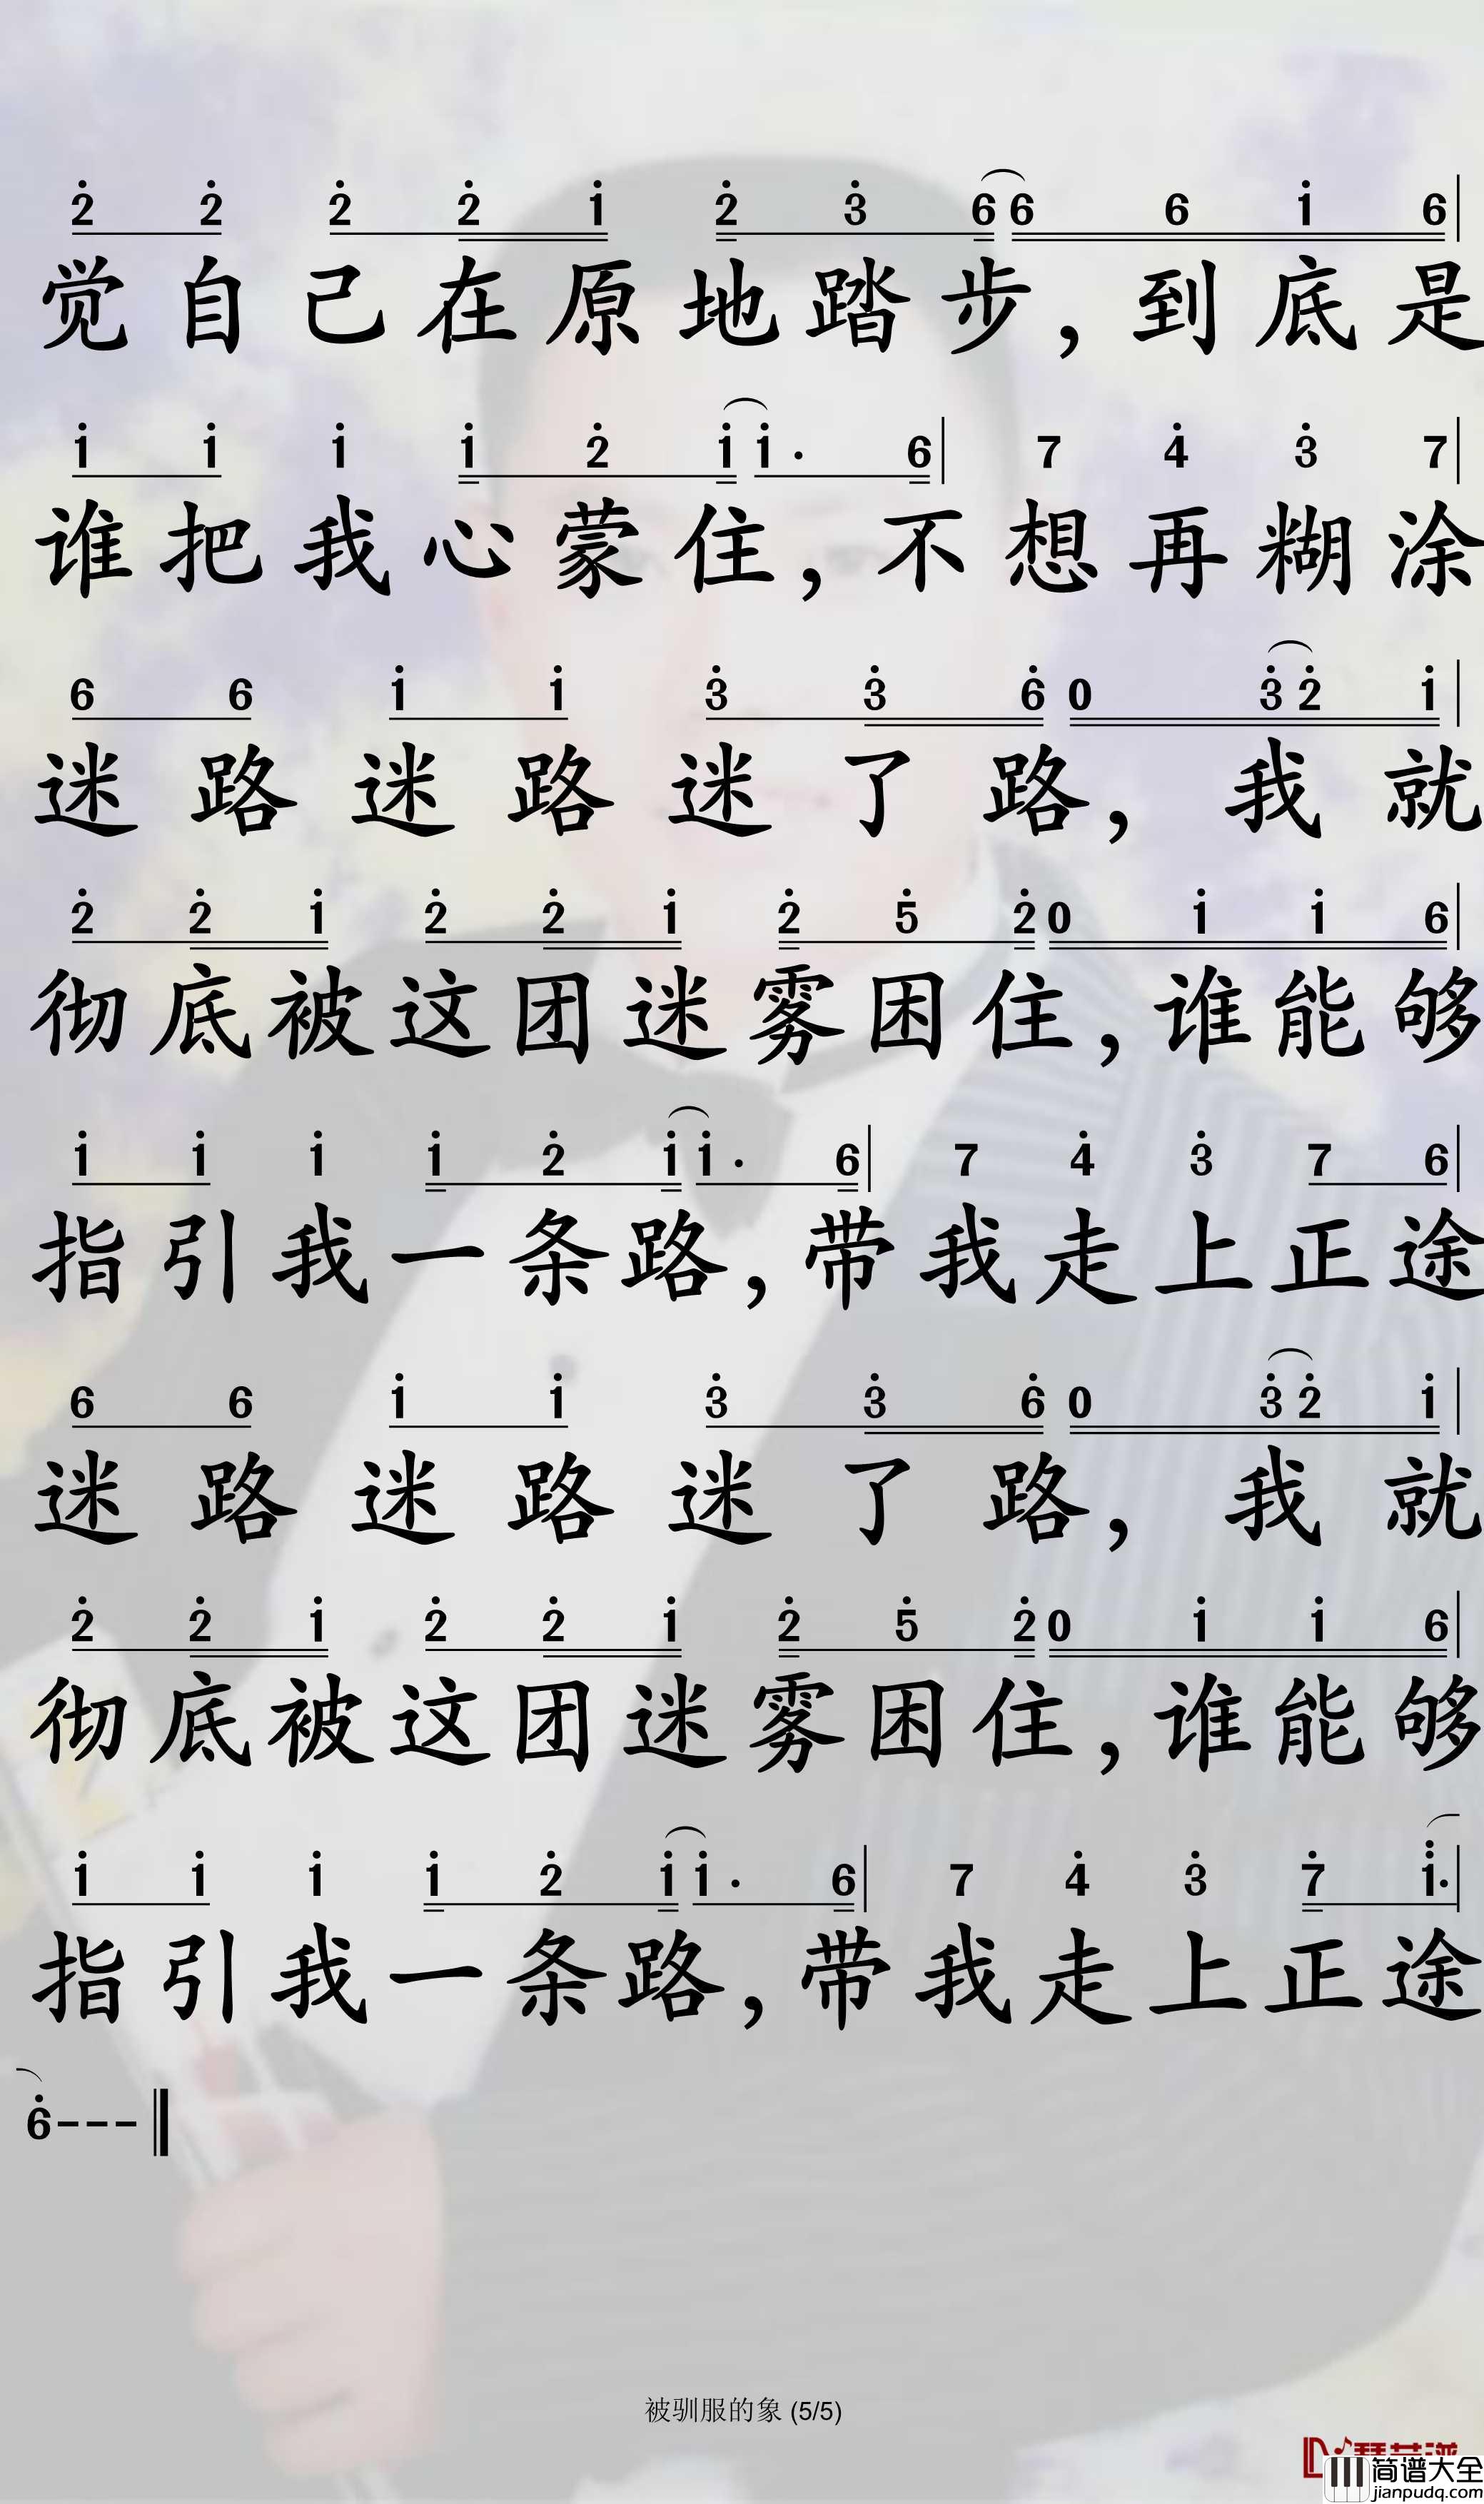 2̇ 2̇ 2̇ 2̇ 1̇ 2̇ 3̇ 6 6 6 1̇ 6 |
觉自己在原地踏步，到底是
1̇ 1̇ 1̇ 1̇ 2̇ 1̇ 1̇ · 6 | 7 4̇ 3̇ 7 |
谁把我心蒙住，不想再糊涂
6 6 1̇ 1̇ 3̇ 3̇ 6̇ 0 3̇ 2̇ 1̇ |
迷路迷路迷了路，我就
2̇ 2̇ 1̇ 2̇ 2̇ 1̇ 2̇ 5̇ 2̇ 0 1̇ 1̇ 6 |
彻底被这团迷雾困住，谁能够
1̇ 1̇ 1̇ 1̇ 2̇ 1̇ 1̇ · 6 | 7 4̇ 3̇ 7 6 |
指引我一条路，带我走上正途
6 6 1̇ 1̇ 3̇ 3̇ 6̇ 0 3̇ 2̇ 1̇ |
迷路迷路迷了路，我就
2̇ 2̇ 1̇ 2̇ 2̇ 1̇ 2̇ 5̇ 2̇ 0 1̇ 1̇ 6 |
彻底被这团迷雾困住，谁能够
1̇ 1̇ 1̇ 1̇ 2̇ 1̇ 1̇ · 6 | 7 4̇ 3̇ 7̇ 1̈ · |
指引我一条路，带我走上正途
6̇ - - - ‖
被驯服的象 (5/5)
简谱大全
jianpudq.com